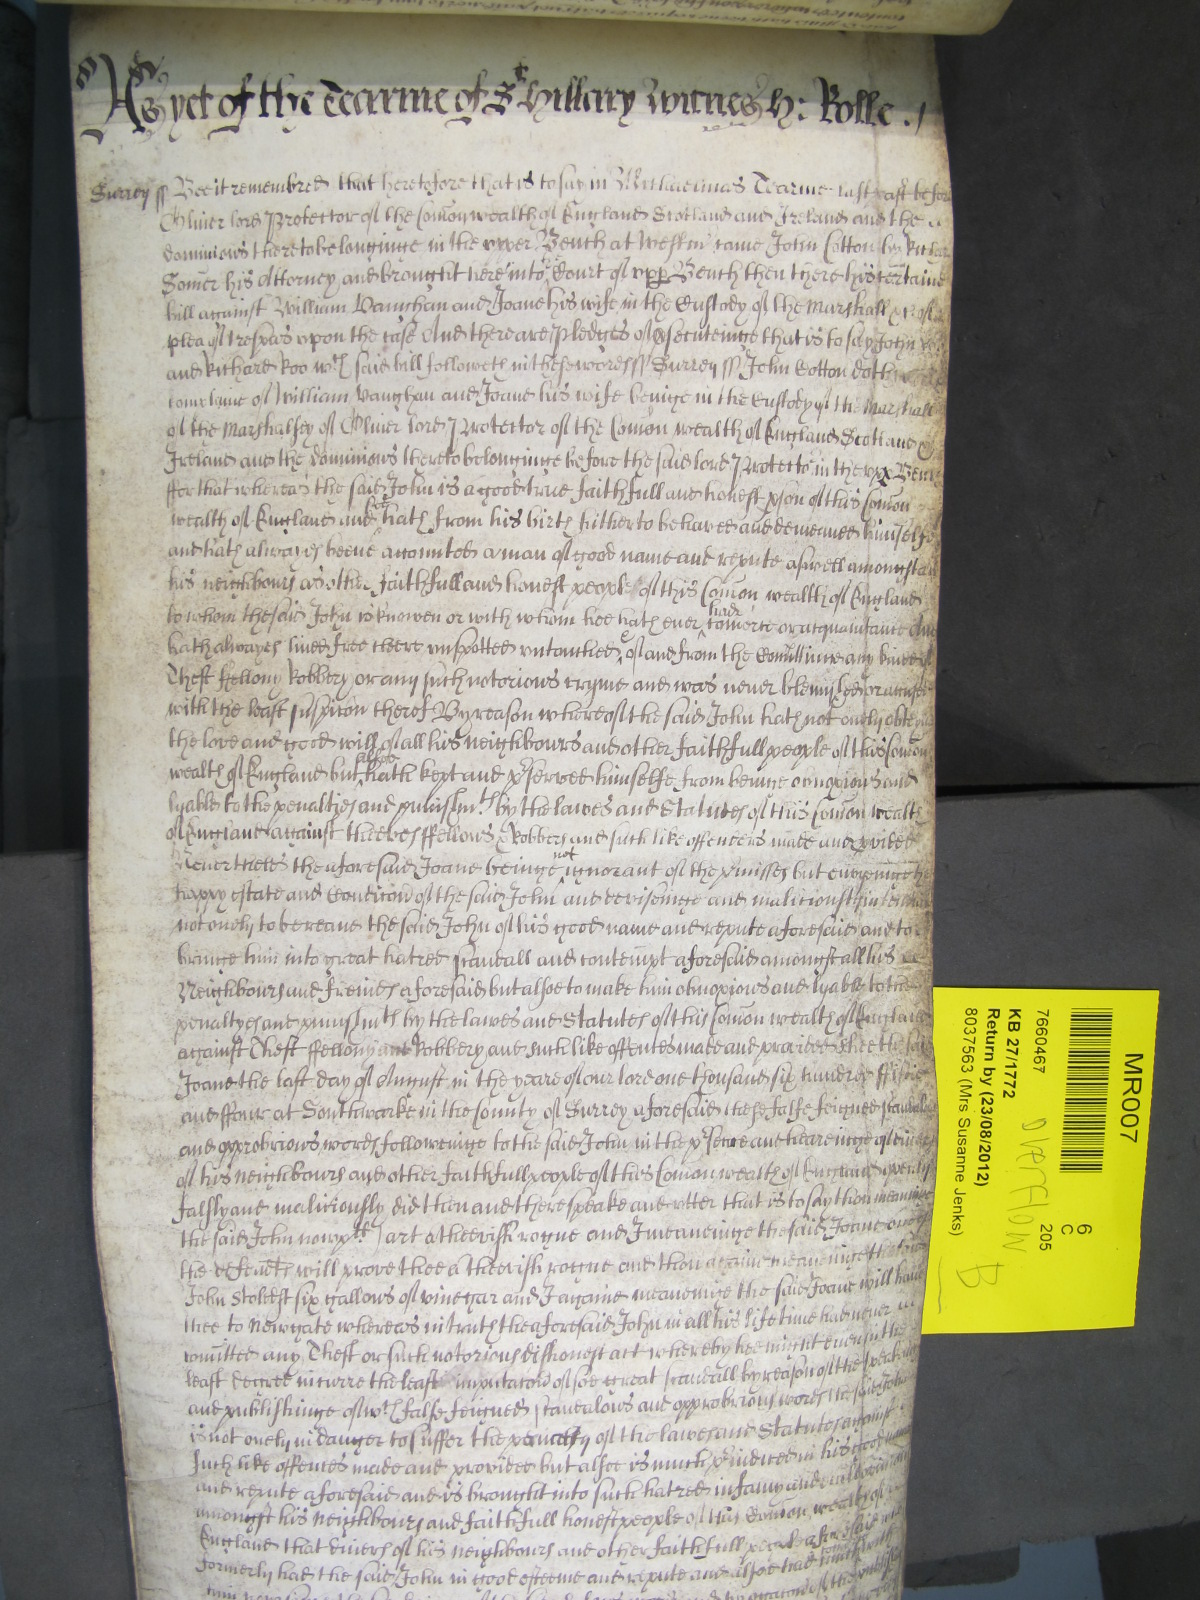 As yet of the Tearme of St Hillary Witnes H: Rolle.
Surrey ss Bee it remembred that heretofore that is to say in Michaelmas Tearme last past before
Oliver lord Protector of the Comon wealth of England Scotland and Ireland and the
dominions thereto belonginge in the vpper Bench at Westm came John Cotton by Richard
Somer his Attorney and brought here into Court of vpp Bench then there his certaine
bill against William Vaughan and Joane his wife in the Custody of the Marshall &c of a
plea of trespas vpon the case And there are Pledges of psecuteinge that is to say John
and Richard Roo wch said bill followeth in these words ss Surrey ss John Cotton doth
complaine of William Vaughan and Joane his wife beinge in the Custody of the Marshall
of the Marshalsey of Oliver lord Protector of the Comon wealth of England Scotland
Ireland and the dominions thereto belonginge before the said lord Protector in the vpp Bench
ffor that whereas the said John is a good true faithfull and honest pson of this Comon
wealth of England and hath from his birth hitherto behaved and demeaned himselfe
and hath alwayes beene accounted a man of good name and repute aswell amongst
his neighbours as other faithfull and honest people of this Comon wealth of England
to whom the said John is knowen or with whom hee hath ever had comerce or acquaintance And
hath alwayes lived free cleere vnspotted vntouched of and from the Comittinge any kinde of
Theft ffellony Robbery or any such notorious cryme and was never blemished or accused
with the least suspicon thereof By reason whereof the said John hath not onely obteyned
the love and good will of all his neighbours and other faithfull people of this Comon
wealth of England but alsoe hath kept and pserved himselfe from beinge obnoxious and
lyable to the penaltyes and punishmts by the lawes and Statutes of this Comon wealth
of England against theeves ffellons Robbers and such like offenders made and provided
Neverthelesse the aforesaid Joane beinge not ignorant of the pmisses but envyinge the
happy estate and Condicon of the said John and devisinge and maliciously intending
not onely to bereave the said John of his good name and repute aforesaid and to
bringe him into great hatred scandall and contempt aforesaid amongst all his
Neighbours and freinds aforesaid but alsoe to make him obnoxious and lyable to the
penaltyes and punishmts by the lawes and Statutes of this Comon wealth of England
against Theft ffellony and Robbery and such like offences made and provided shee the said
Joane the last day of August in the yeare of our lord one thousand six hundred fiftie
and ffour at Southwarke in the County of Surrey aforesaid these false feigned scandalous
and opprobrious words followeinge to the said John in the psence and heareinge of divers
of his neighbours and other faithfull people of this Comon wealth of England openly
falsly and maliciously did then and there speake and vtter that is to say thou meaninge
the said John now plt) art a theevish rogue and I meaneinge the said Joane one of
the defendts will prove thee a theevish rogue and thou againe meaneinge the said
John stolest six gallons of vinegar and I againe meaneinge the said Joane will have
thee to Newgate whereas in truth the aforesaid John in all his life time had never
comitted any Theft or such notorious dishonest act whereby hee might even in the
least degree incurre the least imputacon of soe great scandall by reason of the speaking
and publishinge of wch false feigned scandalous and opprobrious words the said John
is not onely in danger to suffer the penalty of the lawes and Statutes against
such like offences made and provided but alsoe is much preiudiced in his good name
and repute aforesaid and is brought into such hatred infamy and
amongst his neighbours and faithfull honest people of this Comon wealth of
England that divers of his neighbours and other faithfull people aforesaid who
formerly had the said John in good esteeme and repute and alsoe had
MR007
6
C
205
7660467
OVERFLOW
KB 27/1772
Return by (23/08/2012)
8037563 (Mrs Susanne Jenks)
B